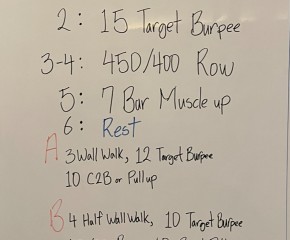 2: 15 Target Burpee
3-4: 450/400 Row
5: 7 Bar Muscle up
6: Rest
A 3 Wall Walk, 12 Target Burpee
10 C2B or Pullup
B 4 Half Wall Walk, 10 Target Burpee